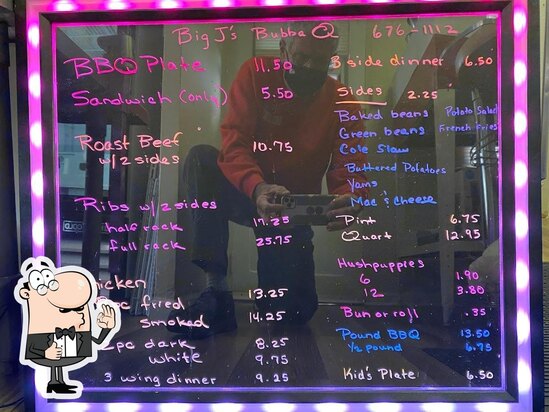 Big J's Bubba Q 676-1112
BBQ Plate 11.50
Sandwich (only) 5.50
Roast Beef 10.75
w/2 sides
Ribs w/2 sides
half rack 17.25
full rack 25.75
fried 13.25
smoked 14.25
dark 8.25
white 9.75
3 wing dinner 9.25
3 side dinner 6.50
Sides 2.25
Baked beans Potato Salad
Green beans French Fries
Cole Slaw
Buttered Potatoes
Yams
Mac & Cheese
Pint 6.75
Quart 12.95
Hushpuppies
6 1.90
12 3.80
Bun or roll .35
Pound BBQ 13.50
1/2 pound 6.75
Kid's Plate 6.50